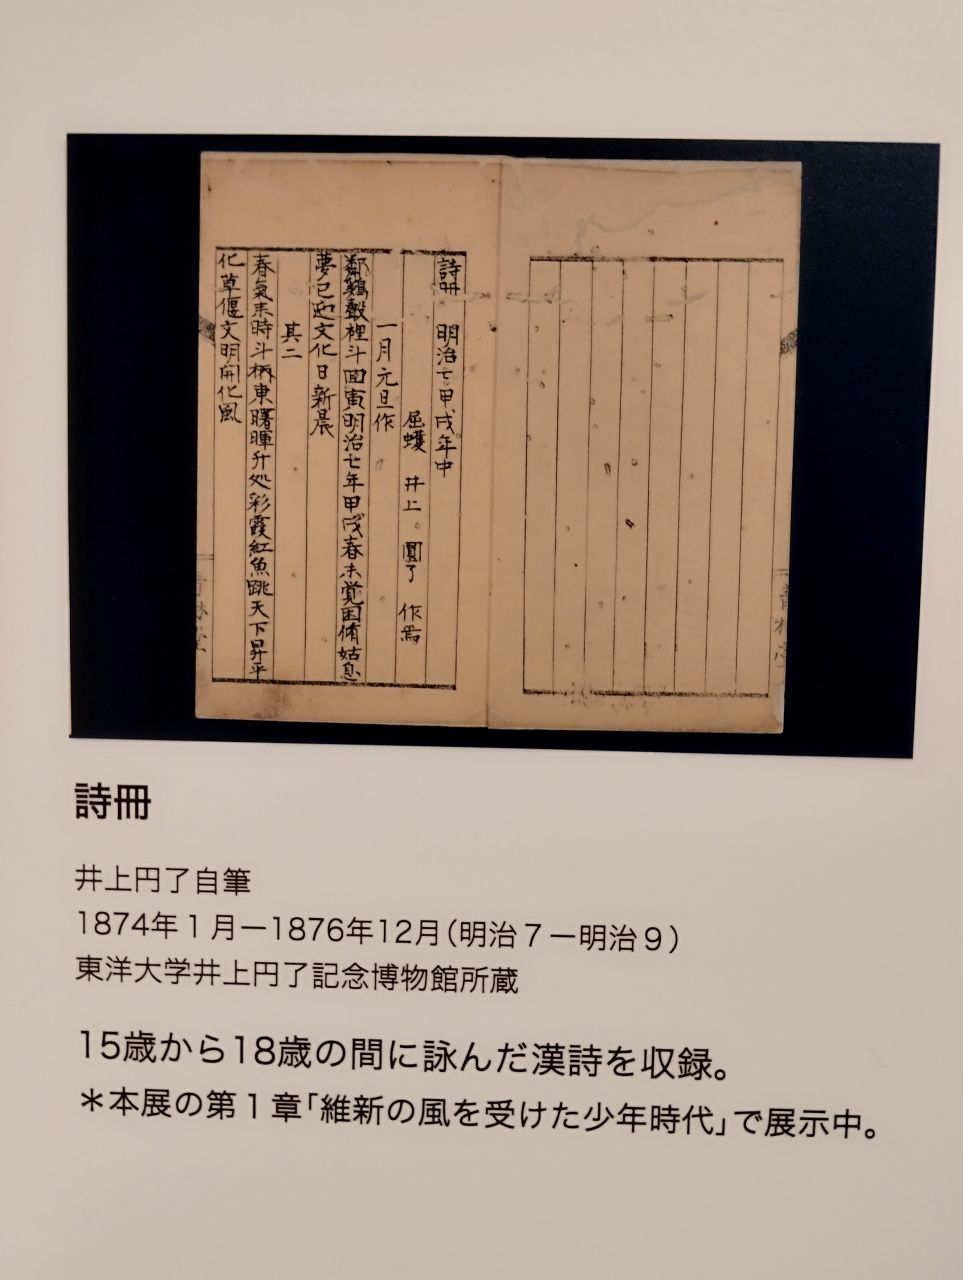 詩冊 明治七甲戌年中
屈蠖 井上 圓了 作焉
一月元旦作
鄰鷄聲裡斗回寅明治七年甲戌春未覚困脩姑息
夢已迎文化日新晨
其二
春氣来時斗柄東曙暉升処彩霞紅魚跳天下昇平
化草偃文明開化風
詩冊
井上円了自筆
1874年1月ー1876年12月(明治7ー明治9)
東洋大学井上円了記念博物館所蔵
15歳から18歳の間に詠んだ漢詩を収録。
＊本展の第1章「維新の風を受けた少年時代」で展示中。